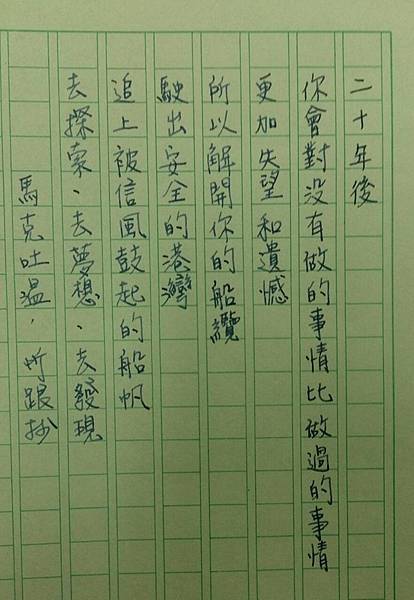 二十年後
你會對沒有做的事情比做過的事情
更加失望和遺憾
所以解開你的船纜
駛出安全的港灣
追上被信風鼓起的船帆
去探索、去夢想、去發現
馬克吐溫,所跟抄